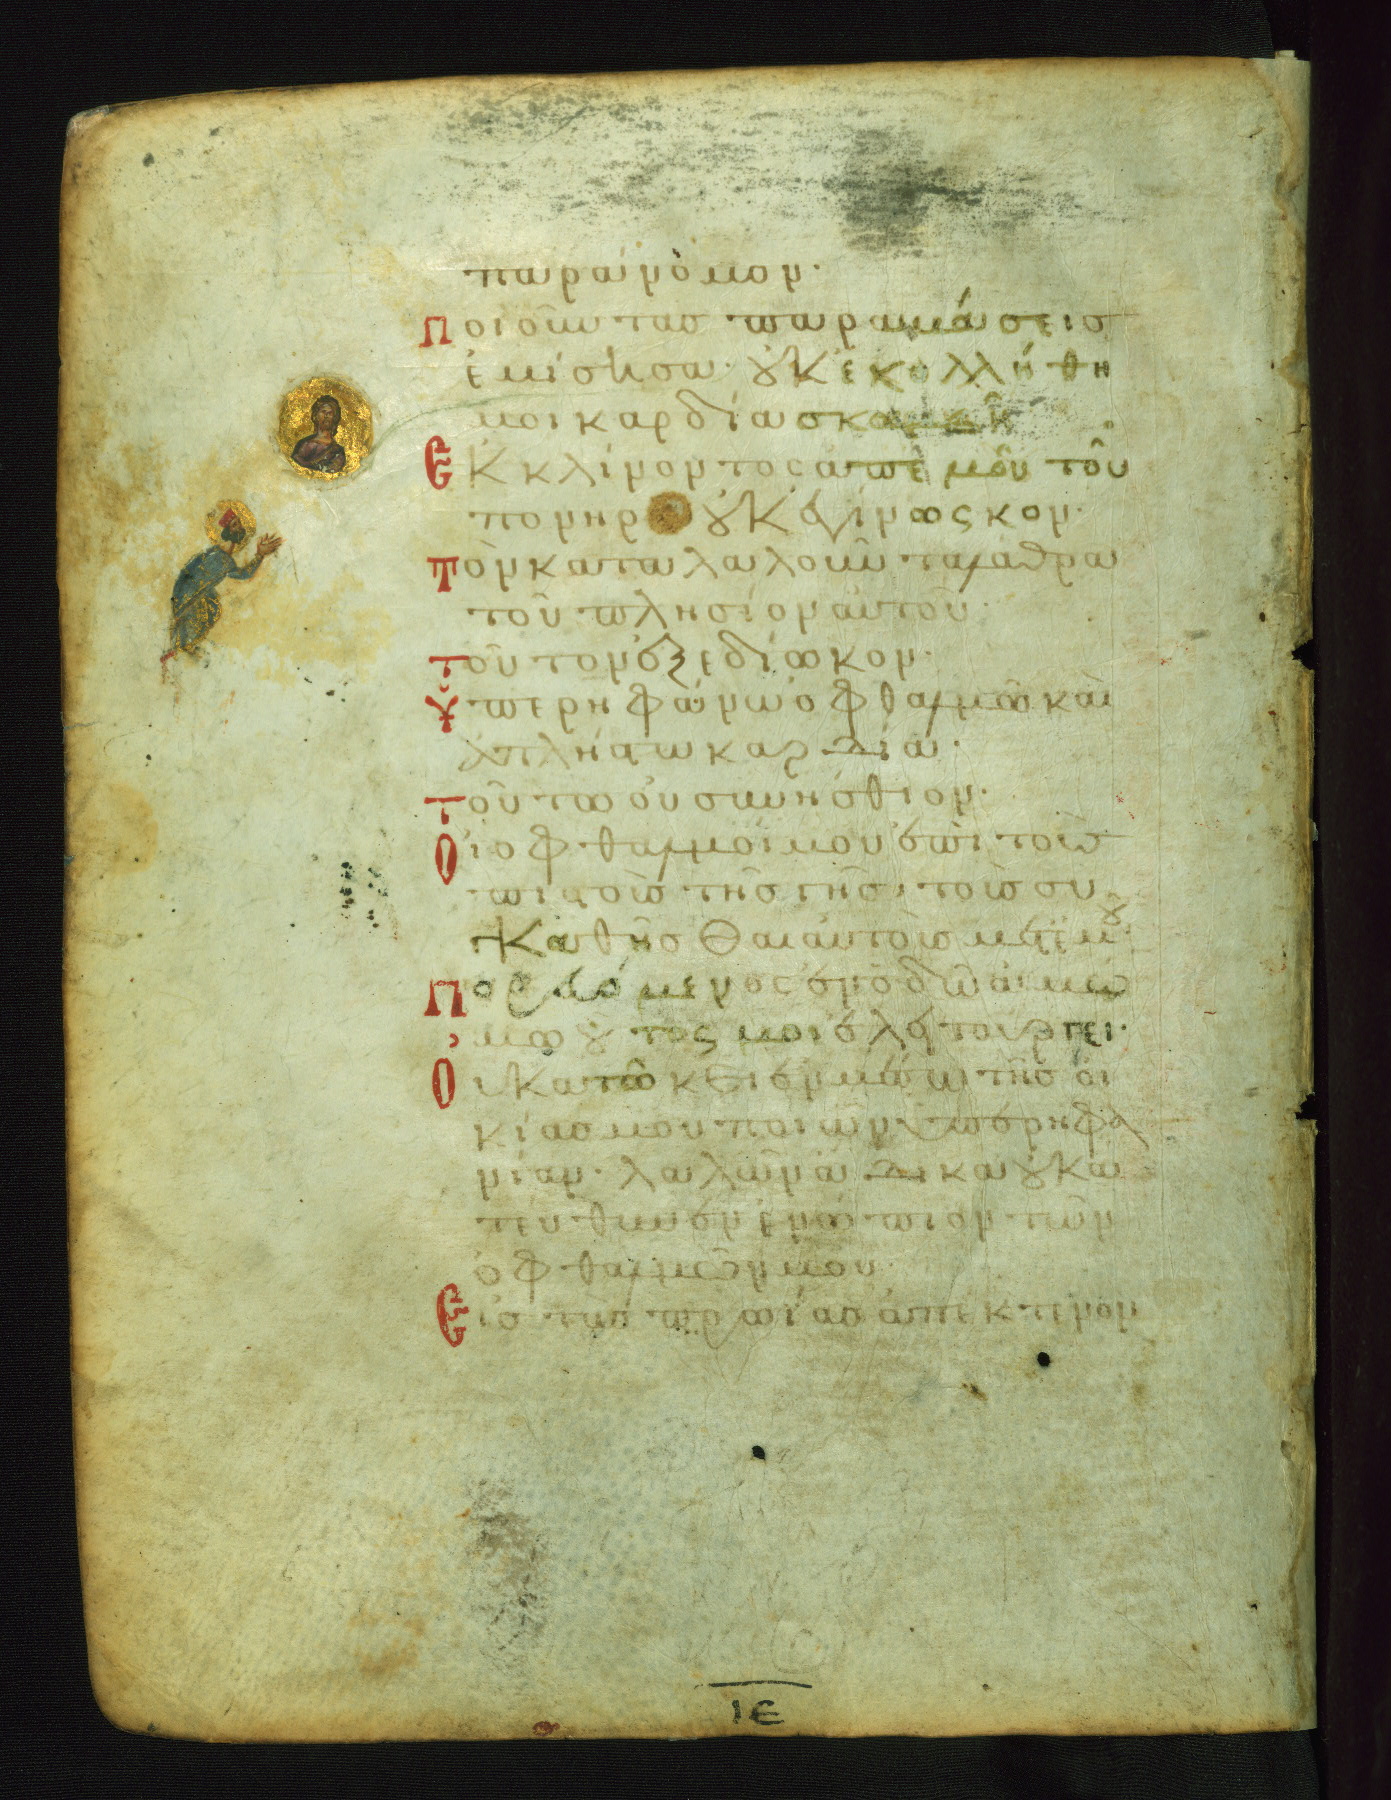 παράνομον·
Ποιοῦντας παραβάσεις
ἐμίσησα· οὐκ ἐκολλήθη
μοι καρδία σκαμβή
Ἐκκλίνοντος ἀπ ἐμοῦ τοῦ
πονηροῦ οὐκ ἐγίνωσκον·
Τὸν καταλαλοῦντα λάθρα
τοῦ πλησίον αὐτοῦ·
τοῦτον ἐξεδίωκον·
Ὑπερηφάνω ὀφθαλμῶ καὶ
ἀπλήστω καρδία·
τούτω οὐ συνήσθιον·
Οἱ ὀφθαλμοί μου ἐπὶ τοὺς
πιστοὺς τῆς γῆς· τοῦ συ
καθῆσθαι αὐτοὺς μετ ἐμοῦ·
Πορευόμενος ἐν ὁδῶ ἀμώ
μω οὗτος μοι ἐλειτούργει·
Οὐ κατώκει ἐν μέσω τῆς οἰ
κίας μου ποιῶν ὑπερηφα
νίαν· λαλῶν ἄδικα οὐ κα
τεύθυνεν ἐνώπιον τῶν
ὀφθαλμῶν μου·
Εἰς τὰς πρωίας ἀπέκτενον
ΙΕ